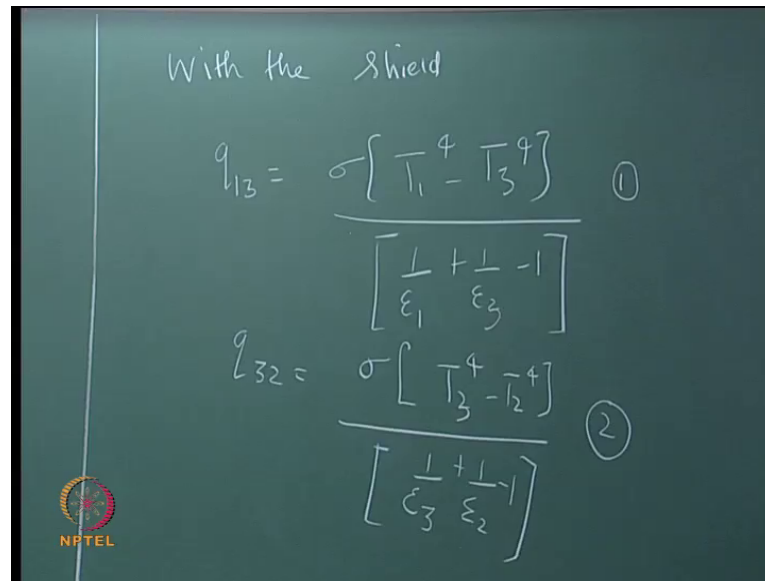 With the shield
q₁₃ = σ[T₁⁴ - T₃⁴] ①
[1/ε₁ + 1/ε₃ - 1]
q₃₂ = σ[T₃⁴ - T₂⁴] ②
[1/ε₃ + 1/ε₂ - 1]
NPTEL